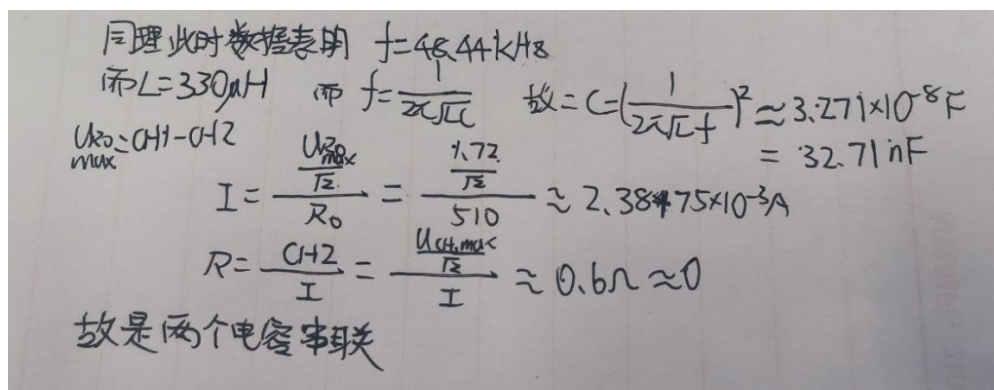 同理此时数据表明 f=48.44kHz
而L=330μH 而 f=1/(2π√LC) 故=C=(1/(2π√L f))²≈3.271×10⁻⁸F
UR0max=CH1-CH2 =32.71nF
I=(UR0max/√2)/R0=(1.72/√2)/510≈2.38475×10⁻³A
R=CH2/I=(UCH2max/√2)/I≈0.6Ω≈0
故是两个电容串联